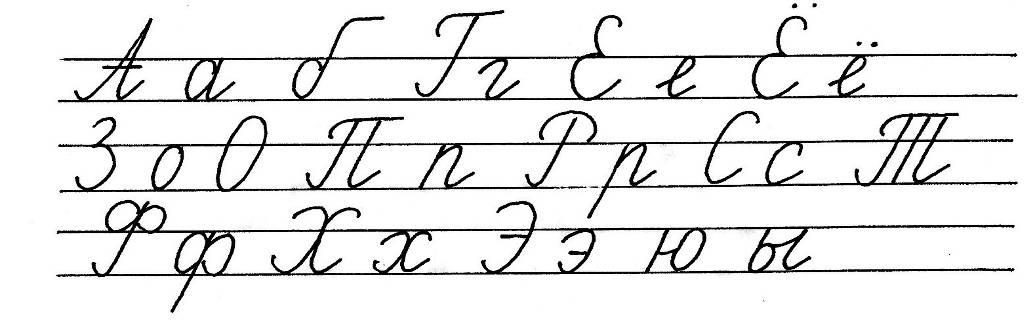 А а б Г г Е е Ё ё
З о О П п Р р С с Т
Ф ф Х х Э э ю ы